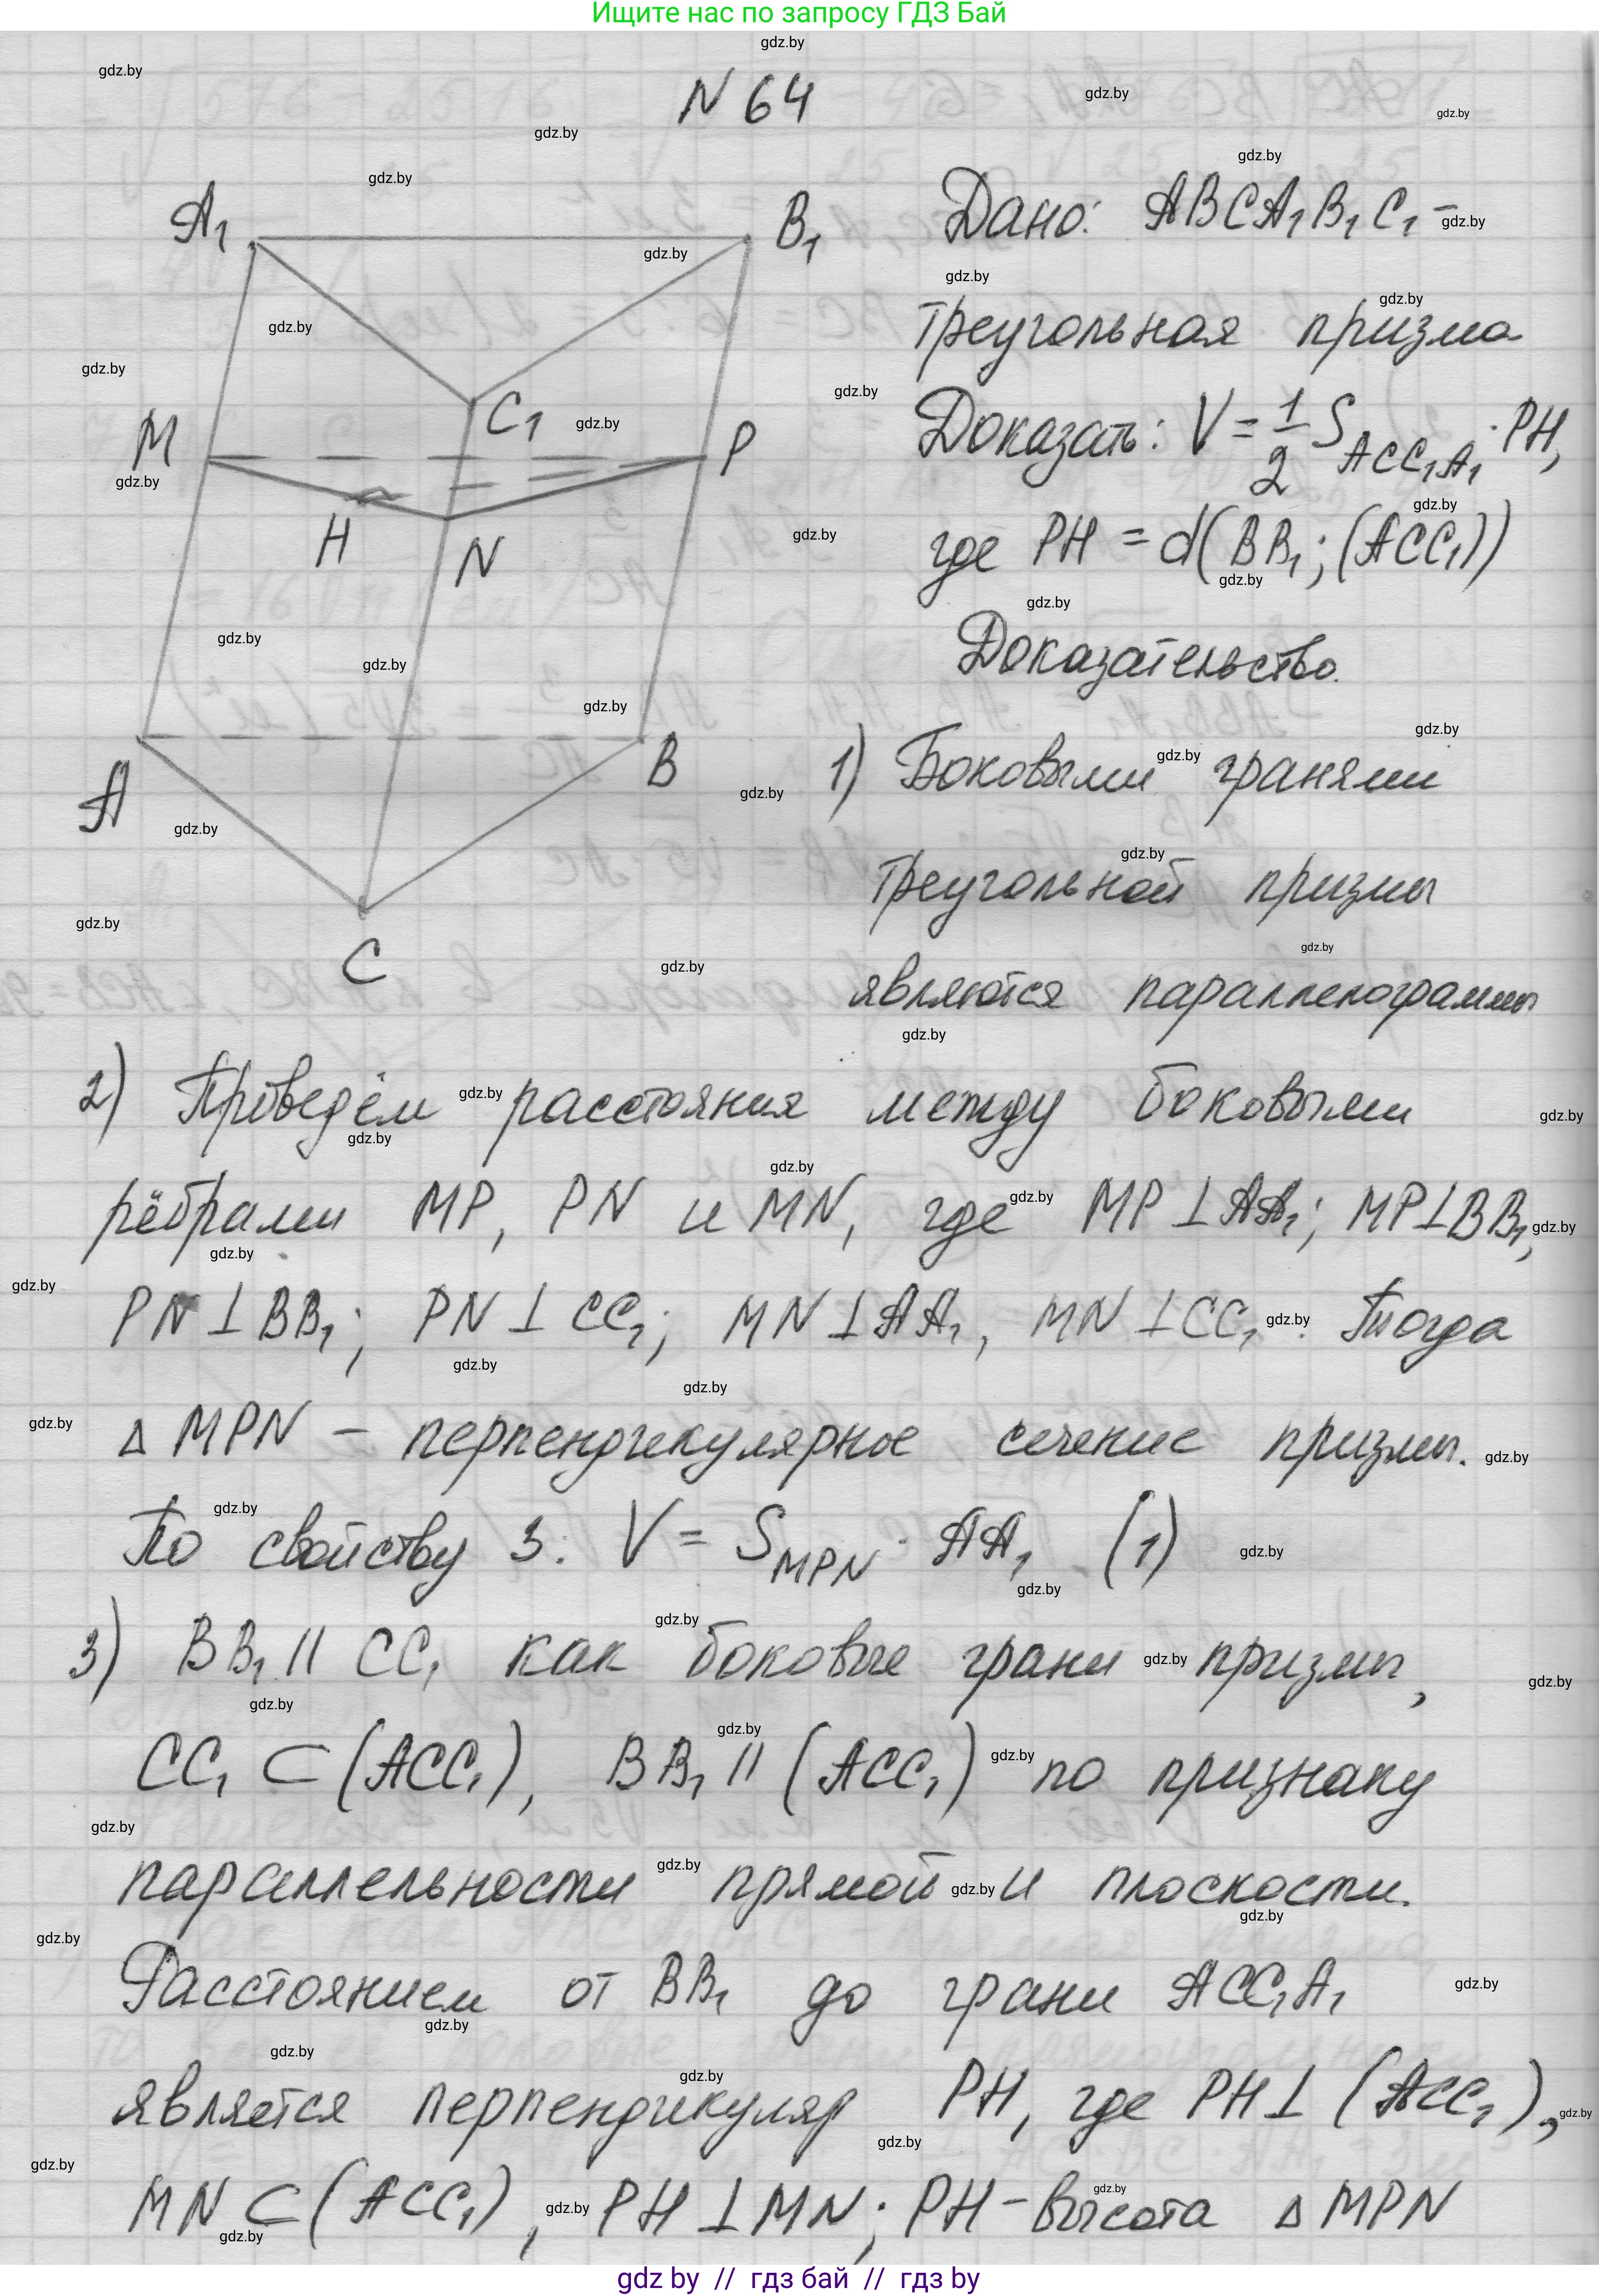 Ищите нас по запросу ГДЗ Бай
N 64
A₁
B₁
C₁
M
P
H
N
A
B
C
Дано: ABCA₁B₁C₁ –
треугольная призма
Доказать: V = 1/2 S_ACC₁A₁ · PH,
где PH = d(BB₁; (ACC₁))
Доказательство.
1) Боковыми гранями
треугольной призмы
являются параллелограммы
2) Проведём расстояния между боковыми
рёбрами MP, PN и MN, где MP ⊥ AA₁; MP ⊥ BB₁,
PN ⊥ BB₁; PN ⊥ CC₁; MN ⊥ AA₁, MN ⊥ CC₁. Тогда
△ MPN – перпендикулярное сечение призмы.
По свойству 3: V = S_MPN · AA₁ (1)
3) BB₁ || CC₁ как боковые грани призмы,
CC₁ ⊂ (ACC₁), BB₁ || (ACC₁) по признаку
параллельности прямой и плоскости.
Расстоянием от BB₁ до грани ACC₁A₁
является перпендикуляр PH, где PH ⊥ (ACC₁),
MN ⊂ (ACC₁), PH ⊥ MN; PH – высота △ MPN
gdz by // гдз бай // гдз by